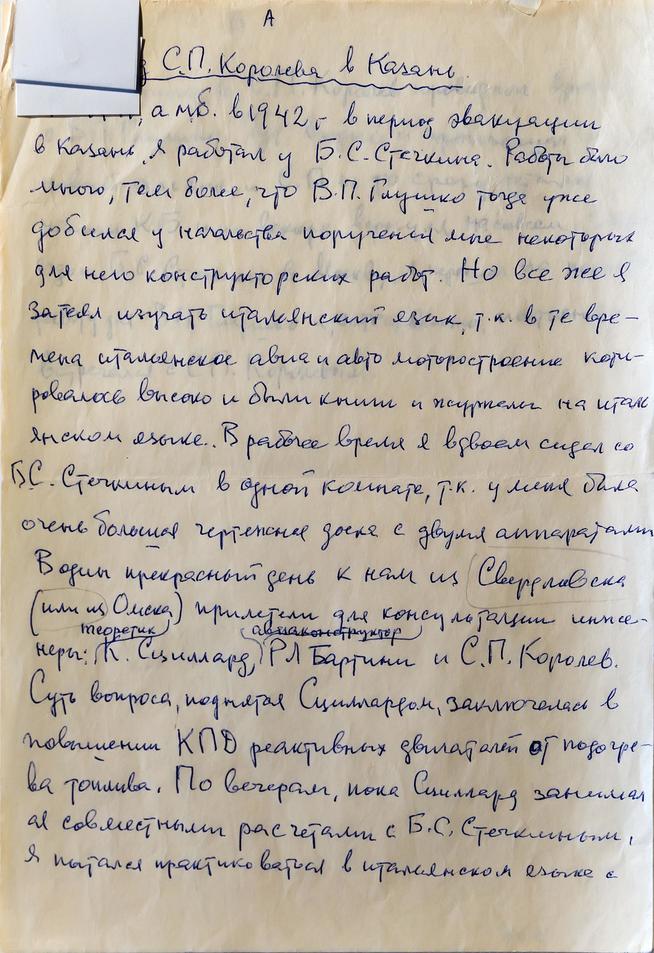 А
С.П. Королева в Казань
, а м.б. в 1942 г в период эвакуации
в Казань я работал у Б.С. Стечкина. Работы было
много, тем более, что В.П. Глушко тогда уже
добился у начальства поручения мне некоторых
для него конструкторских работ. Но все же я
затеял изучать итальянский язык, т.к. в те вре-
мена итальянское авиа и авто моторостроение коти-
ровалось высоко и были книги и журналы на италь
янском языке. В рабочее время я вдвоем сидел со
Б.С. Стечкиным в одной комнате, т.к. у меня была
очень большая чертежная доска с двумя аппаратами
В один прекрасный день к нам из Свердловска
(или из Омска) прилетели для консультации инже-
теоретик авиаконструктор
неры: К. Сциллард, РЛ Бартини и С.П. Королев.
Суть вопроса, поднятая Сциллардом, заключалась в
повышении КПД реактивных двигателей от подогре-
ва топлива. По вечерам, пока Сциллард занимал
ся совместными расчетами с Б.С. Стечкиным,
я пытался практиковаться в итальянском языке с